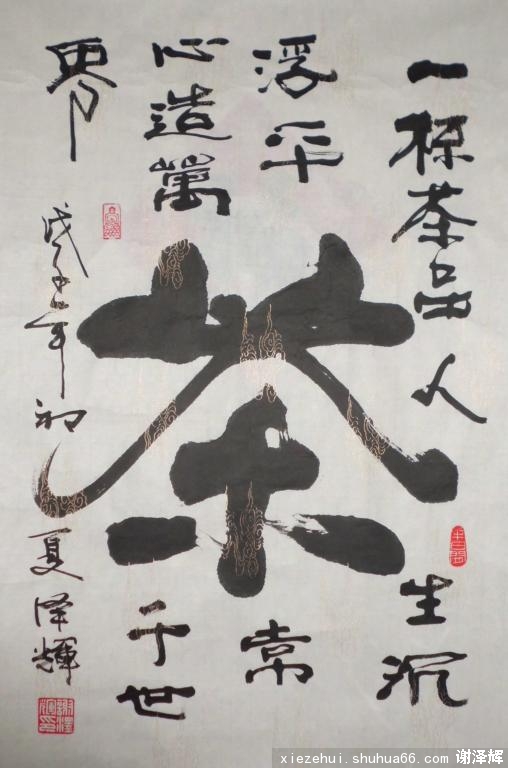 一杯茶品人生沉
浮平常
心造萬千世
界
茶
戊子年初夏泽輝
謝澤輝印
xiezehui.shuhua66.com 谢泽辉